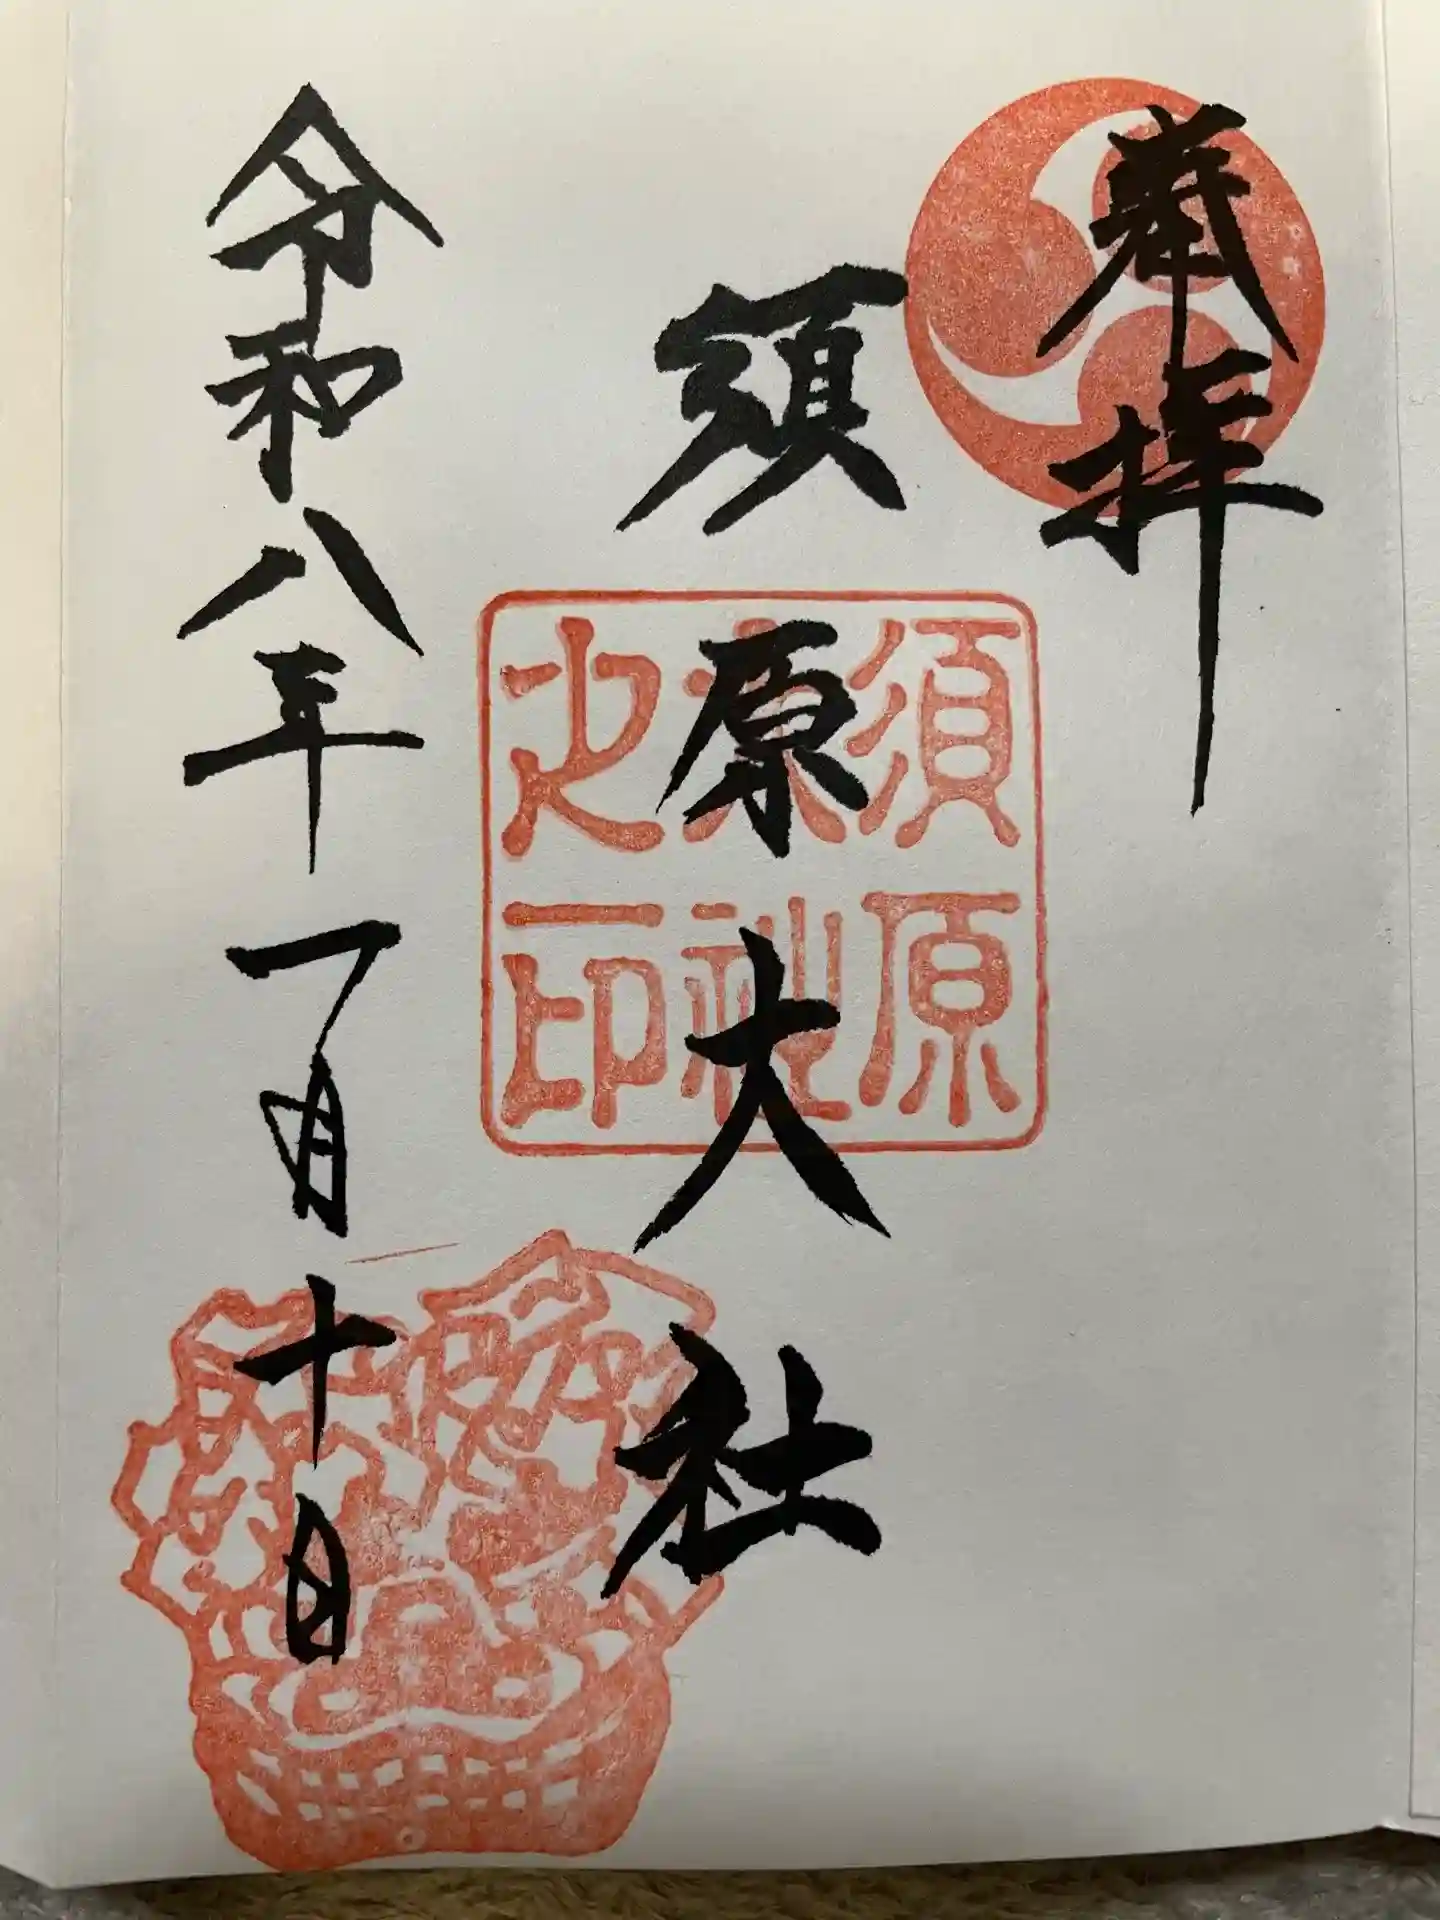 奉拝
須原大社
須原
大社
之印
令和八年一月十日